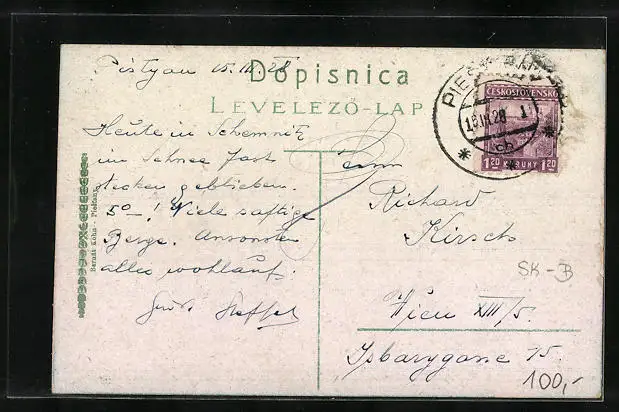 Pistyan 15.III.28
Dopisnica
LEVELEZŐ-LAP
Heute in Schemnitz
im Schnee fast
stecken geblieben.
50-! Viele saftige
Berge. Ansonsten
alles wohlauf!
Bernát Kohn - Piešťany
PIEŠŤANY
15.III.28 1
ČESKOSLOVENSKO
1.20 KORUNY 1.20
Herrn
Richard
Kirsch
SK-B
Wien XIII/5.
Isbarygasse 15.
100,-